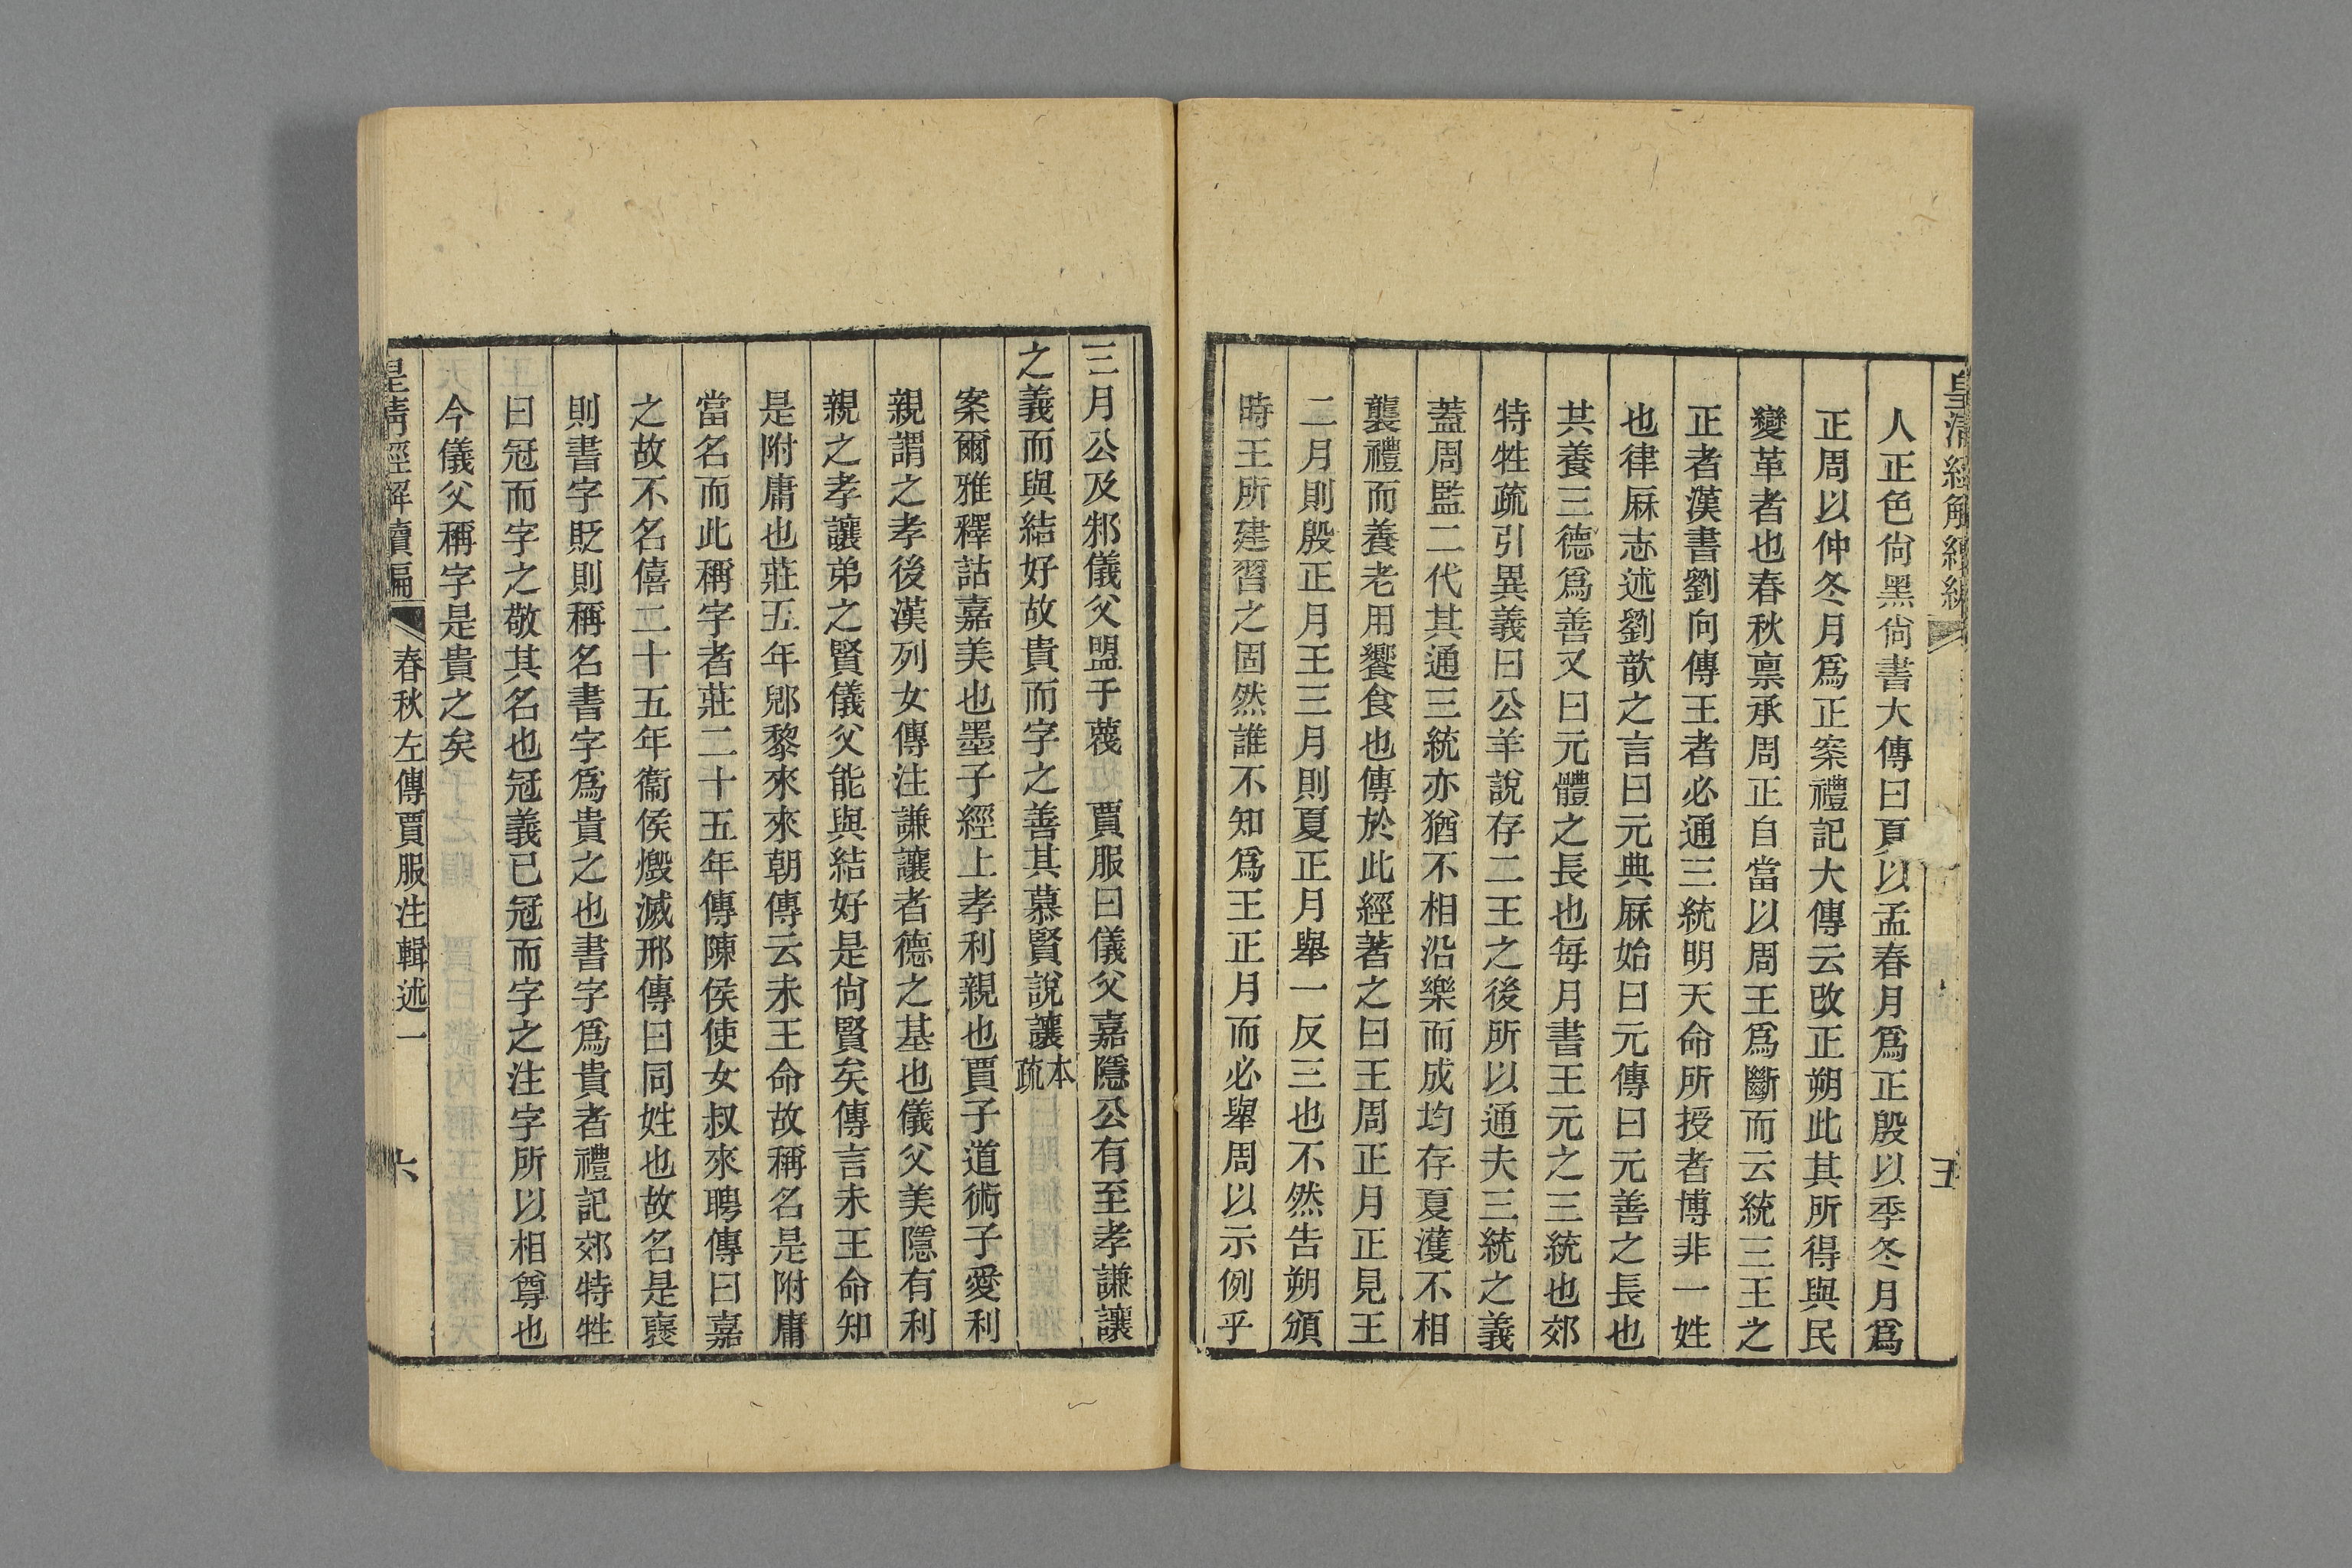 皇清經解續編
五
人正色尙黑尙書大傳曰夏以孟春月爲正殷以季冬月爲
正周以仲冬月爲正案禮記大傳云改正朔此其所得與民
變革者也春秋稟承周正自當以周王爲斷而云統三王之
正者漢書劉向傳王者必通三統明天命所授者博非一姓
也律厤志述劉歆之言曰元典厤始曰元傳曰元善之長也
共養三德爲善又曰元體之長也每月書王元之三統也郊
特牲疏引異義曰公羊說存二王之後所以通夫三統之義
蓋周監二代其通三統亦猶不相沿樂而成均存夏濩不相
襲禮而養老用饗食也傳於此經著之曰王周正月正見王
二月則殷正月王三月則夏正月舉一反三也不然告朔頒
時王所建習之固然誰不知爲王正月而必舉周以示例乎
三月公及邾儀父盟于蔑 賈服曰儀父嘉隱公有至孝謙讓
之義而與結好故貴而字之善其慕賢說讓本疏
案爾雅釋詁嘉美也墨子經上孝利親也賈子道術子愛利
親謂之孝後漢列女傳注謙讓者德之基也儀父美隱有利
親之孝讓弟之賢儀父能與結好是尙賢矣傳言未王命知
是附庸也莊五年郳黎來來朝傳云未王命故稱名是附庸
當名而此稱字者莊二十五年傳陳侯使女叔來聘傳曰嘉
之故不名僖二十五年衞侯燬滅邢傳曰同姓也故名是襃
則書字貶則稱名書字爲貴之也書字爲貴者禮記郊特牲
曰冠而字之敬其名也冠義已冠而字之注字所以相尊也
今儀父稱字是貴之矣
皇清經解續編
春秋左傳賈服注輯述一
六